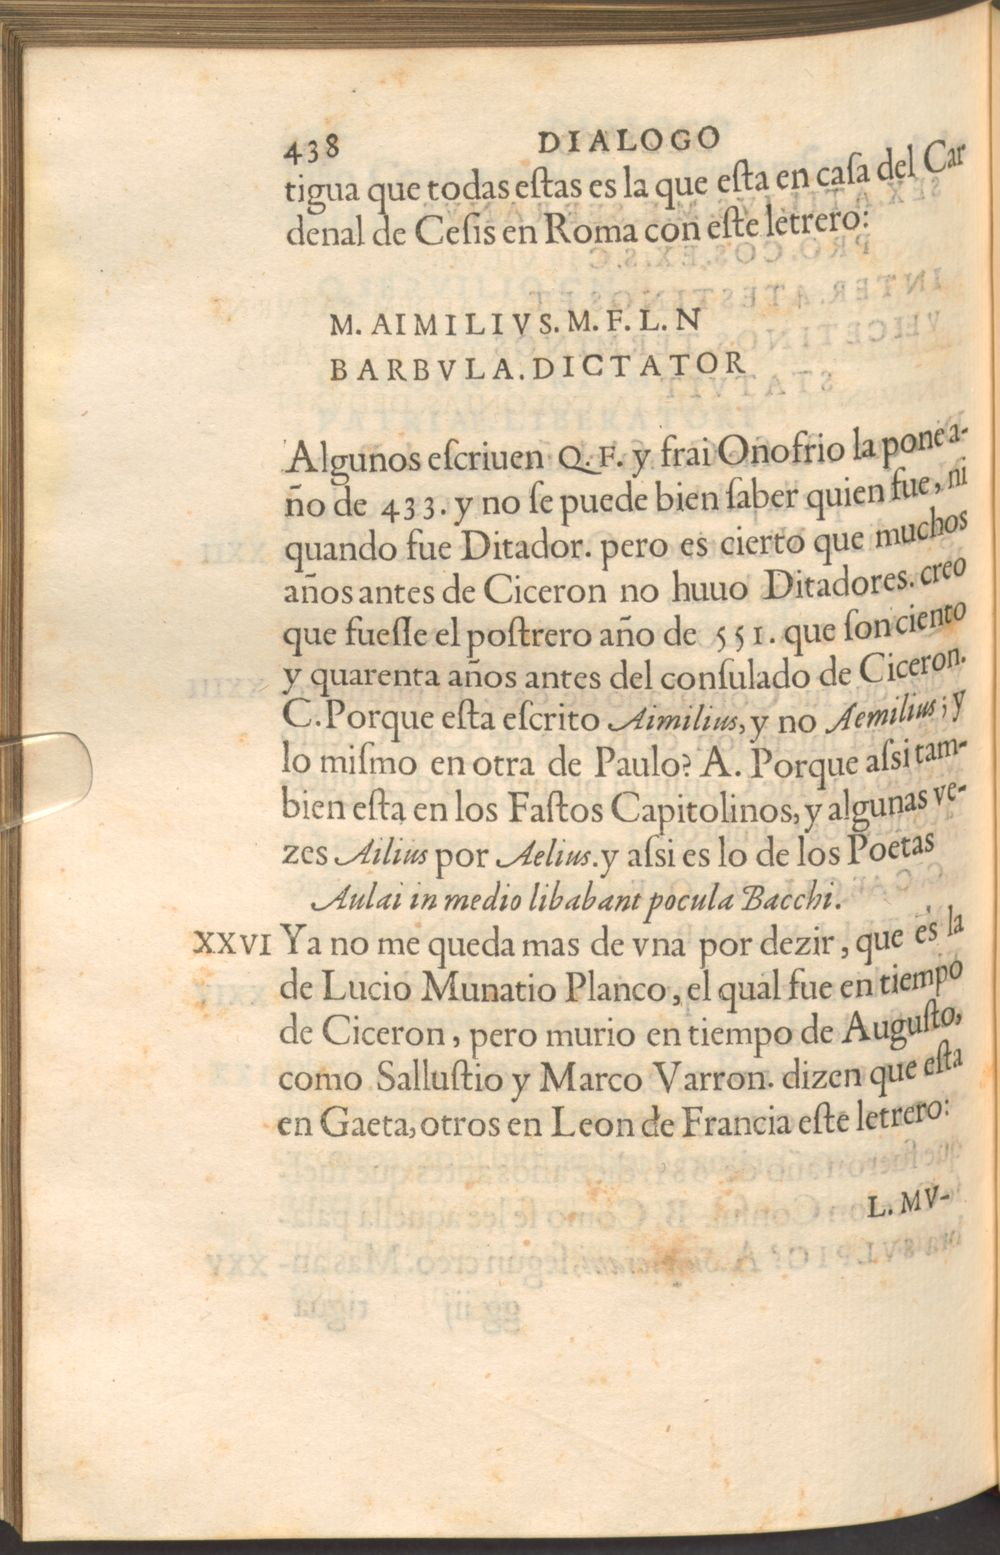 438 DIALOGO
tigua que todas eſtas es la que eſta en caſa del Car
denal de Ceſis en Roma con eſte letrero:
M. AIMILIVS. M. F. L. N
BARBVLA. DICTATOR
Algunos eſcriuen Q. F. y frai Onofrio la pone a-
ño de 433. y no ſe puede bien ſaber quien fue, ni
quando fue Ditador. pero es cierto que muchos
años antes de Ciceron no huuo Ditadores. creo
que fueſſe el poſtrero año de 551. que ſon ciento
y quarenta años antes del conſulado de Ciceron.
C. Porque eſta eſcrito Aimilius, y no Aemilius; y
lo miſmo en otra de Paulo? A. Porque aſsi tam-
bien eſta en los Faſtos Capitolinos, y algunas ve-
zes Ailius por Aelius. y aſsi es lo de los Poetas
Aulai in medio libabant pocula Bacchi.
XXVI Ya no me queda mas de vna por dezir, que es la
de Lucio Munatio Planco, el qual fue en tiempo
de Ciceron, pero murio en tiempo de Auguſto,
como Salluſtio y Marco Varron. dizen que eſta
en Gaeta, otros en Leon de Francia eſte letrero:
L. MV-